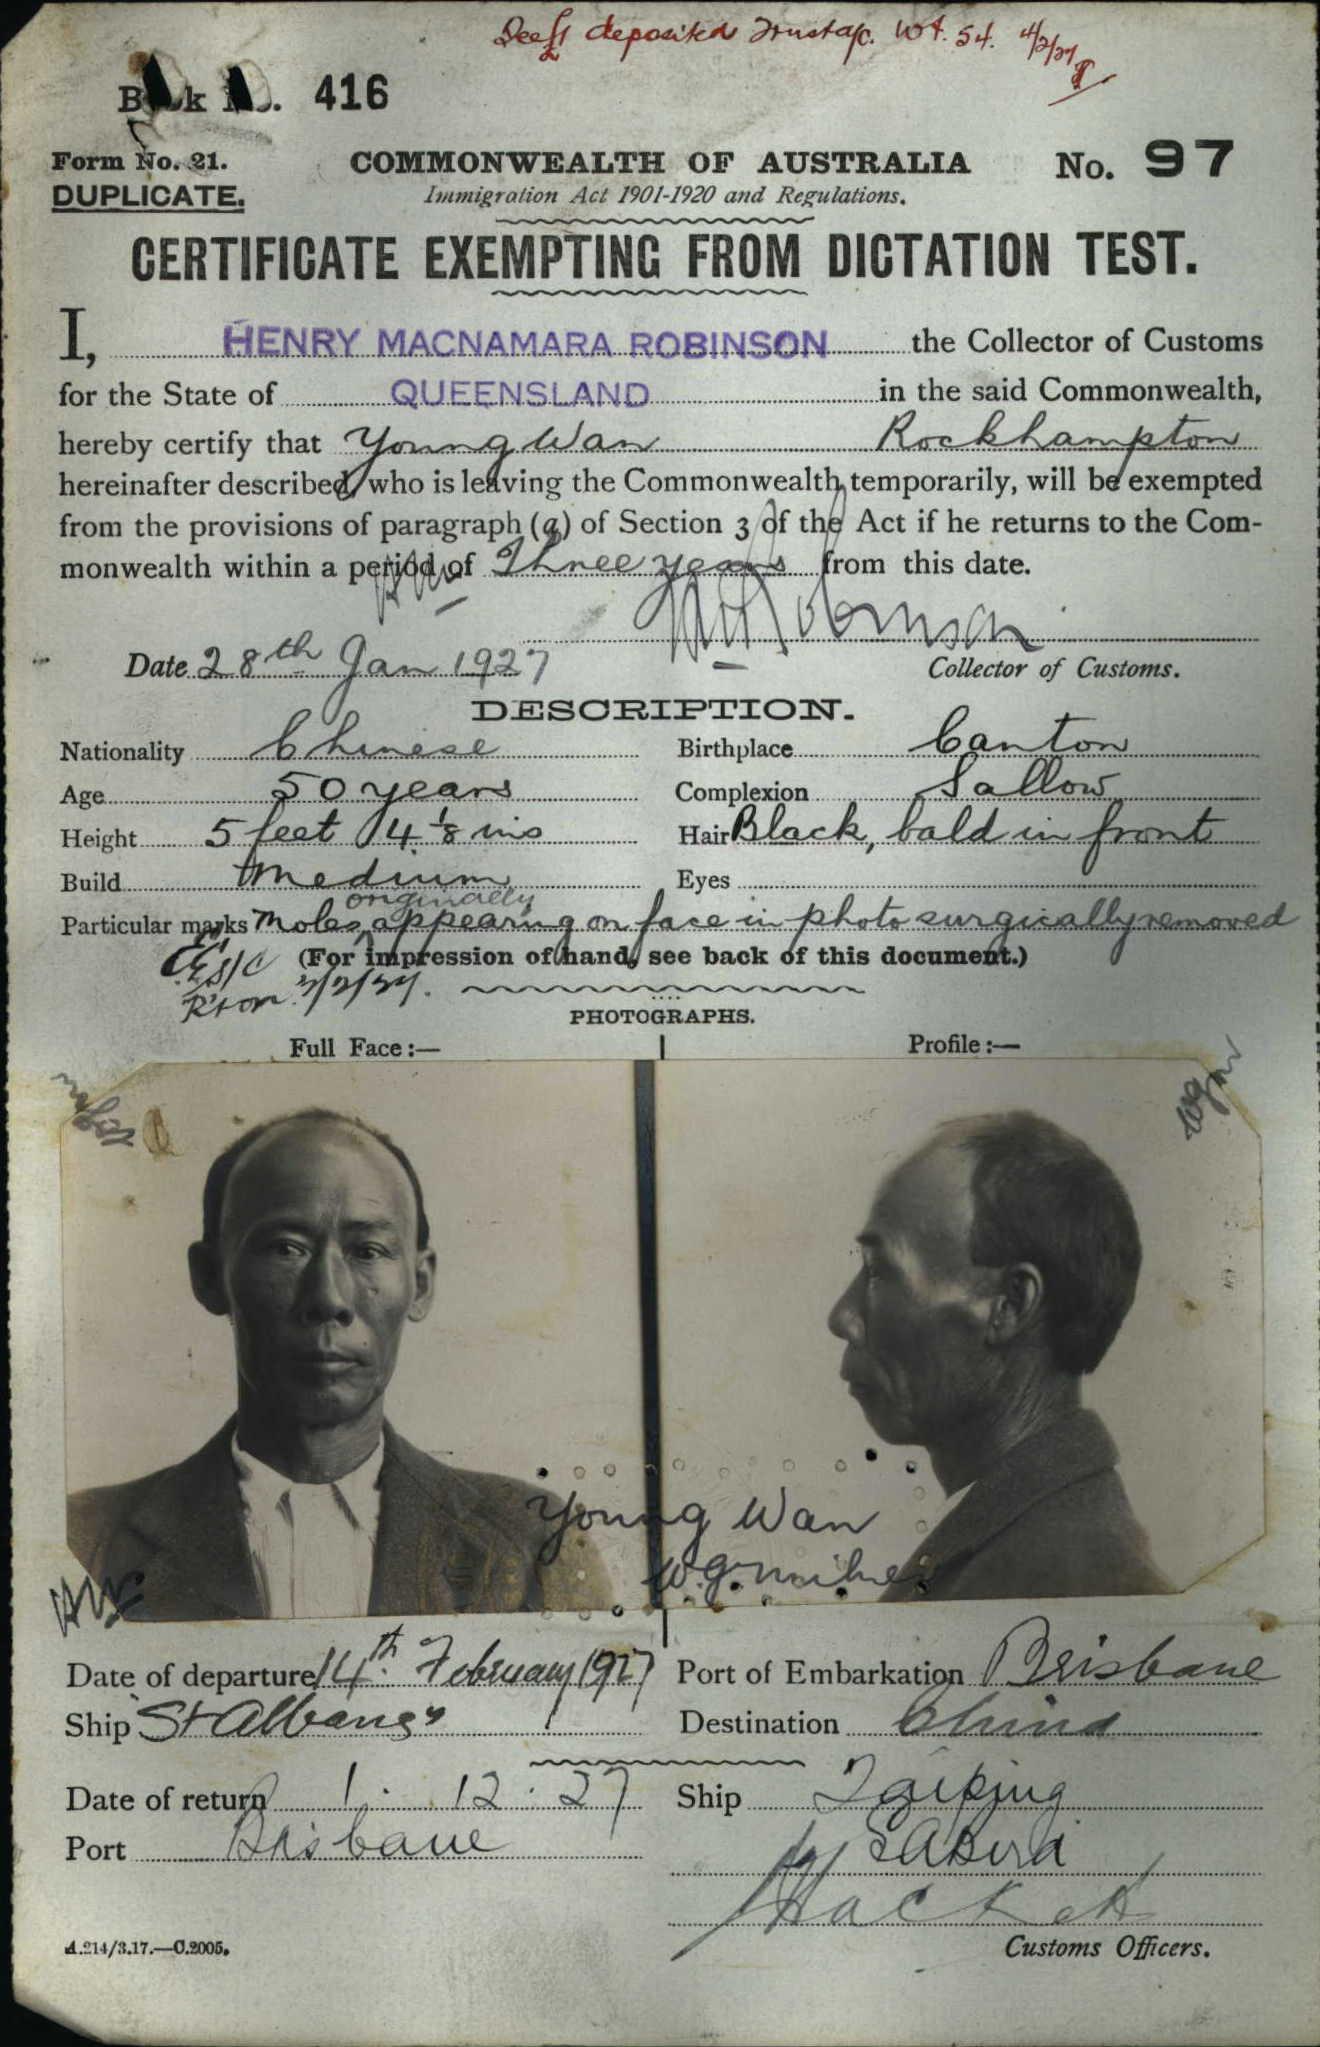 deposited Trust a/c. Wt. 54. 4/2/27
Book No. 416
Form No. 21.
DUPLICATE.
COMMONWEALTH OF AUSTRALIA
No. 97
Immigration Act 1901-1920 and Regulations.
CERTIFICATE EXEMPTING FROM DICTATION TEST.
I, HENRY MACNAMARA ROBINSON the Collector of Customs
for the State of QUEENSLAND in the said Commonwealth,
hereby certify that Young Wan Rockhampton
hereinafter described, who is leaving the Commonwealth temporarily, will be exempted
from the provisions of paragraph (a) of Section 3 of the Act if he returns to the Com-
monwealth within a period of Three years from this date.
Robinson
Date 28th Jan 1927
Collector of Customs.
DESCRIPTION.
Nationality Chinese Birthplace Canton
Age 50 years Complexion Sallow
Height 5 feet 4 1/8 ins Hair Black, bald in front
Build Medium Eyes
originally
Particular marks Moles appearing on face in photo surgically removed
(For impression of hand, see back of this document.)
R'ton
PHOTOGRAPHS.
Full Face:— Profile:—
Young Wan
W.G. Milner
Date of departure 14th February 1927 Port of Embarkation Brisbane
Ship "St Albans" Destination China
Date of return 1. 12. 27 Ship Taiping
Port Brisbane
Hackett
A.214/3.17.—C.2005.
Customs Officers.